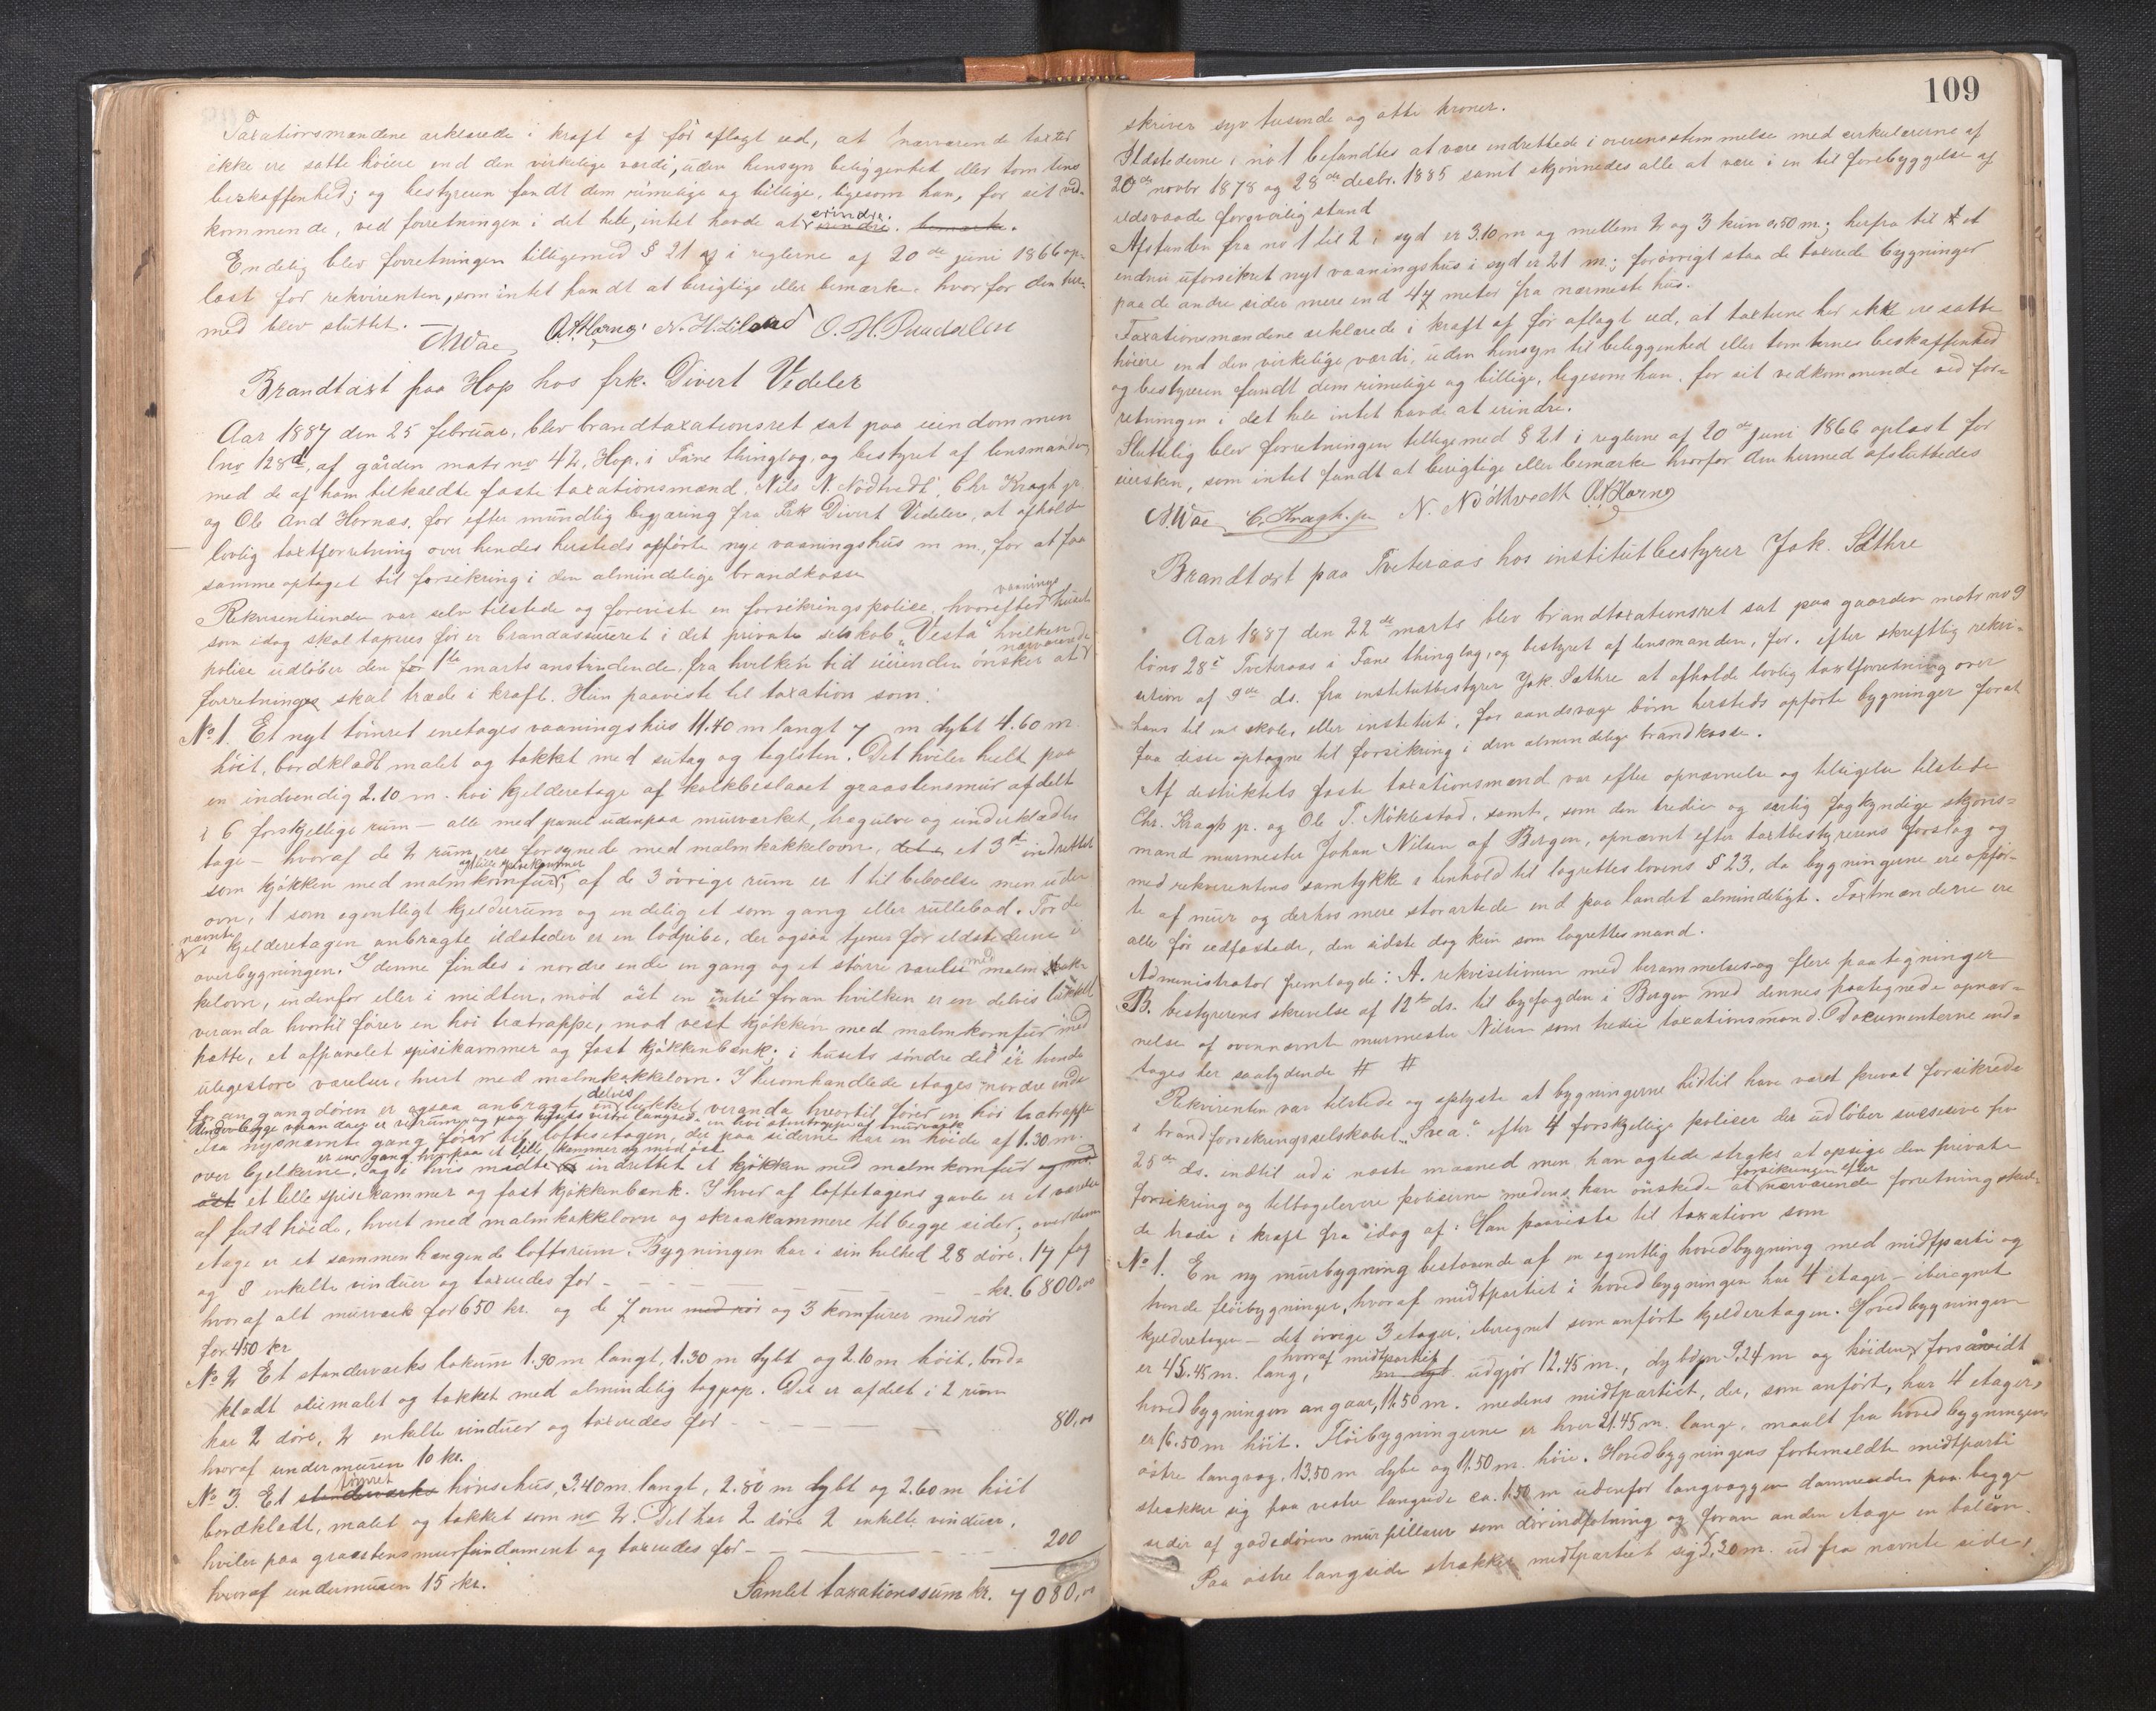 Taxationsmændene erklærede i kraft af før aflagt ed, at nærværende taxter
ikke ere satte høiere end den virkelige værdi, uden hensyn beliggenhed eller tomtens
beskaffenhed; og bestyreren fandt dem rimelige og billige, ligesom han, for sit ved-
kommende, ved forretningen i det hele, intet havde at erindre.
Endelig blev forretningen tilligemed § 21 i reglerne af 20de juni 1866 op-
læst for rekvirenten, som intet fandt at berigtige eller bemærke, hvorfor den her-
med blev sluttet.
Brandtaxt paa Hop hos frk. Divert Vedeler
Aar 1887 den 25 februar, blev brandtaxationsret sat paa eiendommen
lno 128d, af gården matr no 42, Hop, i Fane thinglag, og bestyret af lensmanden
med de af ham tilkaldte faste taxationsmænd, Nils N. Nødtvedt, Chr Kragh jr.
og Ole And Hornæs, for efter mundlig begjæring fra Frk Divert Vedeler, at afholde
lovlig taxtforretning over hendes hersteds opførte nye vaaningshus m m, for at faa
samme optaget til forsikring i den almindelige brandkasse
Rekvirentinden var selv tilstede og foreviste en forsikringspolise, hvorefter vaaningshuset
som idag skal taxeres før er brandassureret i det private selskab "Vesta" hvilken
polise udløber den 1ste marts anstundende, fra hvilken tid eierinden ønsker at nærværende
forretning skal træde i kraft. Hun paaviste til taxation som:
No 1. Et nyt tømret enetages vaaningshus 11.40 m langt 7 m dybt 4.60 m
høit, bordklædt malet og tækket med sutag og teglsten. Det hviler helt paa
en indvendig 2.10 m. høi kjelderetage af kalkbeslaaet graastensmur afdelt
i 6 forskjellige rum – alle med panel udenpaa murværket, trægulve og underklædte
tage – hvoraf de 2 rum ere forsynede med malmkakkelovne, et 3die indrettet
som kjøkken med malmkomfur og lidet spisekammer; af de 3 øvrige rum er 1 til beboelse men uden
ovn, 1 som egentligt kjelderrum og endelig et som gang eller rullebod. For de
nævnte i kjelderetagen anbragte ildsteder er en lodpibe, der ogsaa tjener for ildstederne i
overbygningen. I denne findes i nordre ende en gang og et større værelse med malmkak-
kelovn, indenfor eller i midten, mod øst en entré foran hvilken er en delvis lukket
veranda hvortil fører en høi trætrappe, mod vest kjøkken med malmkomfur med
hætte, et afpanelet spisekammer og fast kjøkkenbænk; i husets søndre del er tvende
uligestore værelser, hvert med malmkakkelovn. I heromhandlede etages nordre ende
foran gangdøren er ogsaa anbragt en delvis lukket veranda hvortil fører en høi trætrappe
Under begge verandaer er rum og paa husets vestre langside en høi stentrappe af murværk
Fra nysnævnte gang fører til loftsetagen, der paa siderne har en høide af 1.30 m.
over bjelkerne, er en gang hvorpaa et lille kammer og mod øst
og i hvis midte indrettet et kjøkken med malmkomfur
et lille spisekammer og fast kjøkkenbænk. I hver af loftetagens gavle er et værelse
af fuld høide, hvert med malmkakkelovn og skraakammere til begge sider; over denne
etage er et sammenhængende loftsrum. Bygningen har i sin helhed 28 døre, 17 fag
og 8 enkelte vinduer og taxeredes for – – – – kr. 6800,00
hvoraf alt murværk for 650 kr. og de 7 ovne med rør og 3 komfurer med rør
for 450 kr
No 2 Et standerværks lokum 1.90 m langt, 1.30 m dybt og 2.10 m høit, bord-
klædt oliemalet og tækket med almindelig tagpap. Det er afdelt i 2 rum
har 2 døre, 2 enkelte vinduer og taxeredes for – – – – 80,00
hvoraf undermuren 10 kr.
No 3. Et tømret hønsehus, 3.40 m. langt, 2.80 m dybt og 2.60 m høit
bordklædt, malet og tækket som no 2. Det har 2 døre 2 enkelte vinduer,
hviler paa graastensmurfundament og taxeredes for – – – – 200
hvoraf undermuren 15 kr.
Samlet taxationssum kr. 7080,00
109
skriver syv tusende og otti kroner.
Ildstederne i no 1 befandtes at være indrettede i overensstemmelse med cirkulærerne af
20de novbr 1878 og 28de decbr. 1885 samt skjønnedes alle at være i en til forebyggelse af
ildsvaade forsvarlig stand
Afstanden fra no 1 til 2 i syd er 3.10 m og mellem 2 og 3 kun 0,50 m; herfra til et
endnu uforsikret nyt vaaningshus i syd er 21 m.; forøvrigt staa de taxerede bygninger
paa de andre sider mere end 47 meter fra nærmeste hus.
Taxationsmændene erklærede i kraft af før aflagt ed, at taxterne her ikke ere satte
høiere end den virkelige værdi, uden hensyn til beliggenhed eller tomternes beskaffenhed
og bestyreren fandt dem rimelige og billige, ligesom han, for sit vedkommende ved for-
retningen i det hele intet havde at erindre.
Sluttelig blev forretningen tilligemed § 21 i reglerne af 20de juni 1866 oplæst for
eiersken, som intet fandt at berigtige eller bemærke hvorfor den hermed afsluttedes
C. Kragh. jr N. Nødtvedt
Brandtaxt paa Tveteraas hos institutbestyrer Jak. Sæthre
Aar 1887 den 22de marts blev brandtaxationsret sat paa gaarden matr no 9
løno 28 Tveteraas i Fane thinglag, og bestyret af lensmanden, for, efter skriftlig rekvi-
sition af 9de ds. fra institutbestyrer Jak. Sæthre at afholde lovlig taxtforretning over
hans til en skole, eller institut, for aandssvage børn hersteds opførte bygninger forat
faa disse optagne til forsikring i den almindelige brandkasse.
Af distriktets faste taxationsmænd var efter opnævnelse og tilsigelse tilstede
Chr. Kragh jr. og Ole T. Møklestad, samt, som den tredie og særlig fagkyndige skjøns-
mand murmester Johan Nilsen af Bergen, opnævnt efter taxtbestyrerens forslag og
med rekvirentens samtykke i henhold til lagrettes lovens § 23, da bygningerne ere opfør-
te af mur og derhos mere storartede end paa landet almindeligt. Taxtmændene ere
alle før edfæstede, den sidste dog kun som lagrettesmand.
Administrator fremlagde: A. rekvisitionen med berammelses- og flere paategninger
B. bestyrerens skrivelse af 12te ds. til byfogden i Bergen med dennes paategnede opnæv-
nelse af ovennævnte murmester Nilsen som tredie taxationsmand. Documenterne ind-
tages her saalydende # #
Rekvirenten var tilstede og oplyste at bygningerne hidtil have været privat forsikrede
i brandforsikringsselskabet "Svea." efter 4 forskjellige poliser der udløber succesive fra
25de ds. indtil ud i næste maaned men han agtede straks at opsige den private
forsikring og tilbagelevere poliserne medens han ønskede at forsikringen efter nærværende forretning skul-
de træde i kraft fra idag af: Han paaviste til taxation som
No 1. En ny murbygning bestaaende af en egentlig hovedbygning med midtparti og
tvende fløibygninger, hvoraf midtpartiet i hovedbygningen har 4 etager – iberegnet
kjelderetagen – det øvrige 3 etager, iberegnet som anført kjelderetagen. Hovedbygningen
er 45.45 m. lang, hvoraf midtpartiet udgjør 12.45 m., dybden 9.24 m og høiden, forsåvidt
hovedbygningen angaar, 11.50 m. medens midtpartiet, der, som anført, har 4 etager,
er 16.50 m høit. Fløibygningerne er hver 21.45 m. lange, maalt fra hovedbygningens
østre langvæg, 13.50 m dybe og 11.50 m. høie. Hovedbygningens formeldte midtparti
strækker sig paa vestre langside ca. 1.50 m udenfor langvæggen dannende paa begge
sider af gadedøren murpillarer som dørindfatning og foran anden etage en balcon.
Paa østre langside strækker midtpartiet sig 5,30 m. ud fra nævnte side,